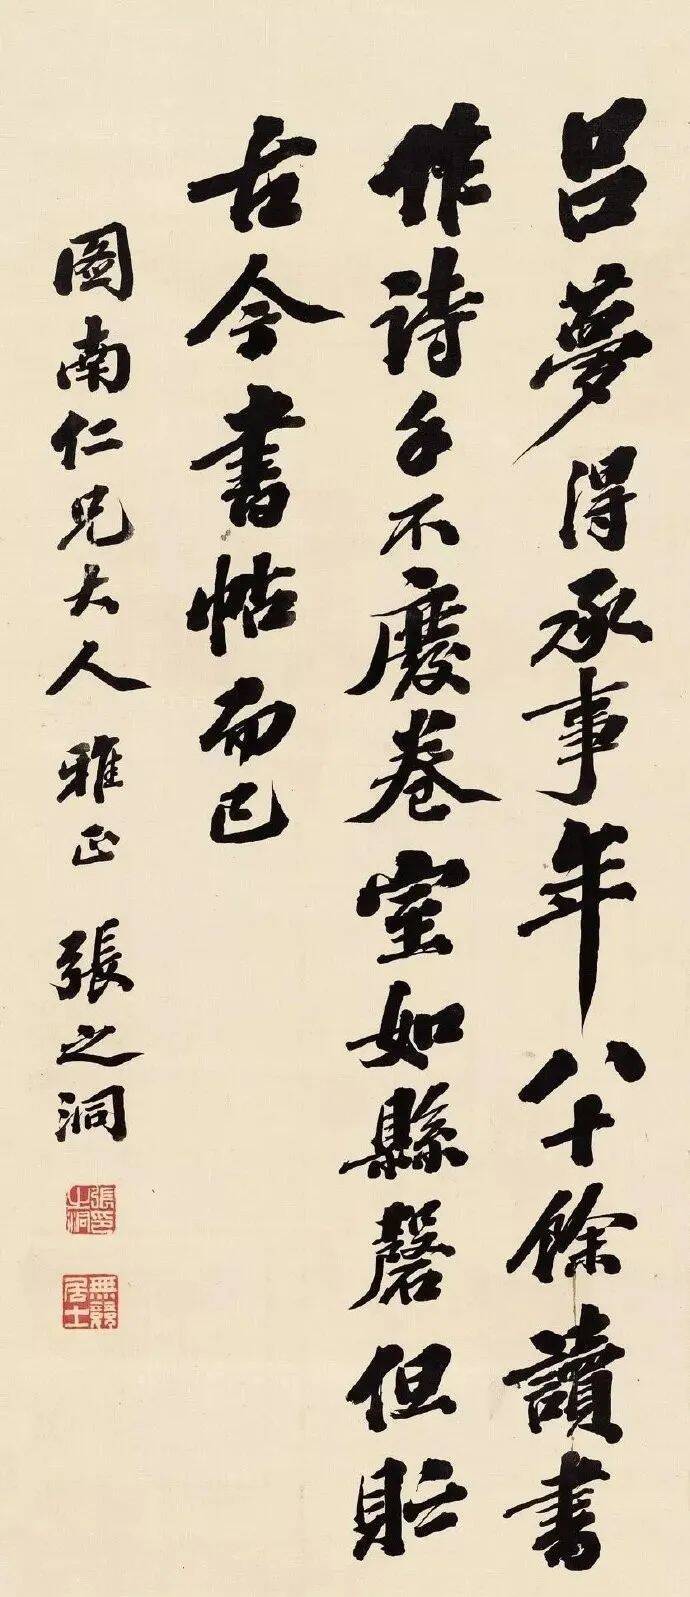 呂夢得承事年八十餘讀書
作詩手不廢卷室如縣磬但貯
古今書帖而已
圖南仁兄大人雅正張之洞
張之洞印
無競居士